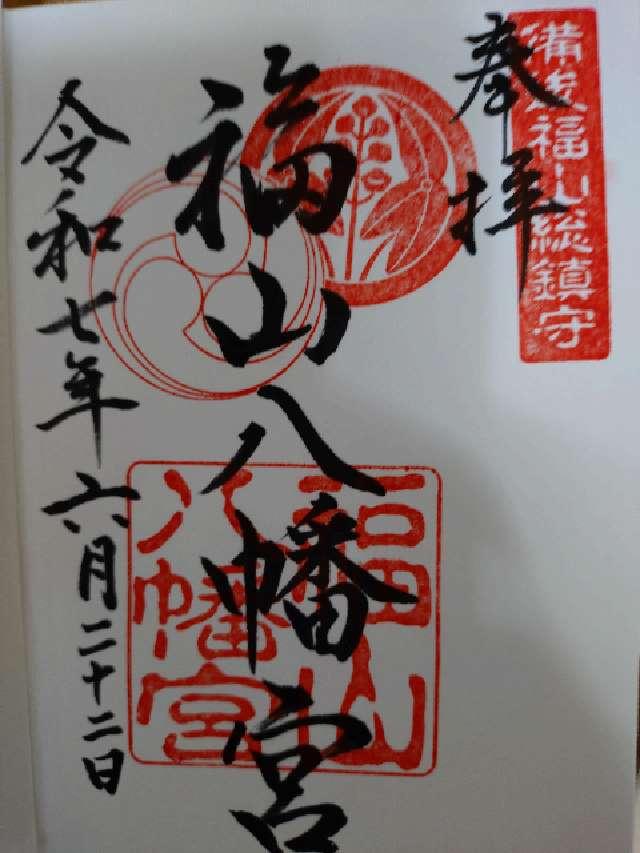 備後福山総鎮守
奉拝
福山八幡宮
福山
八幡宮
令和七年六月二十二日